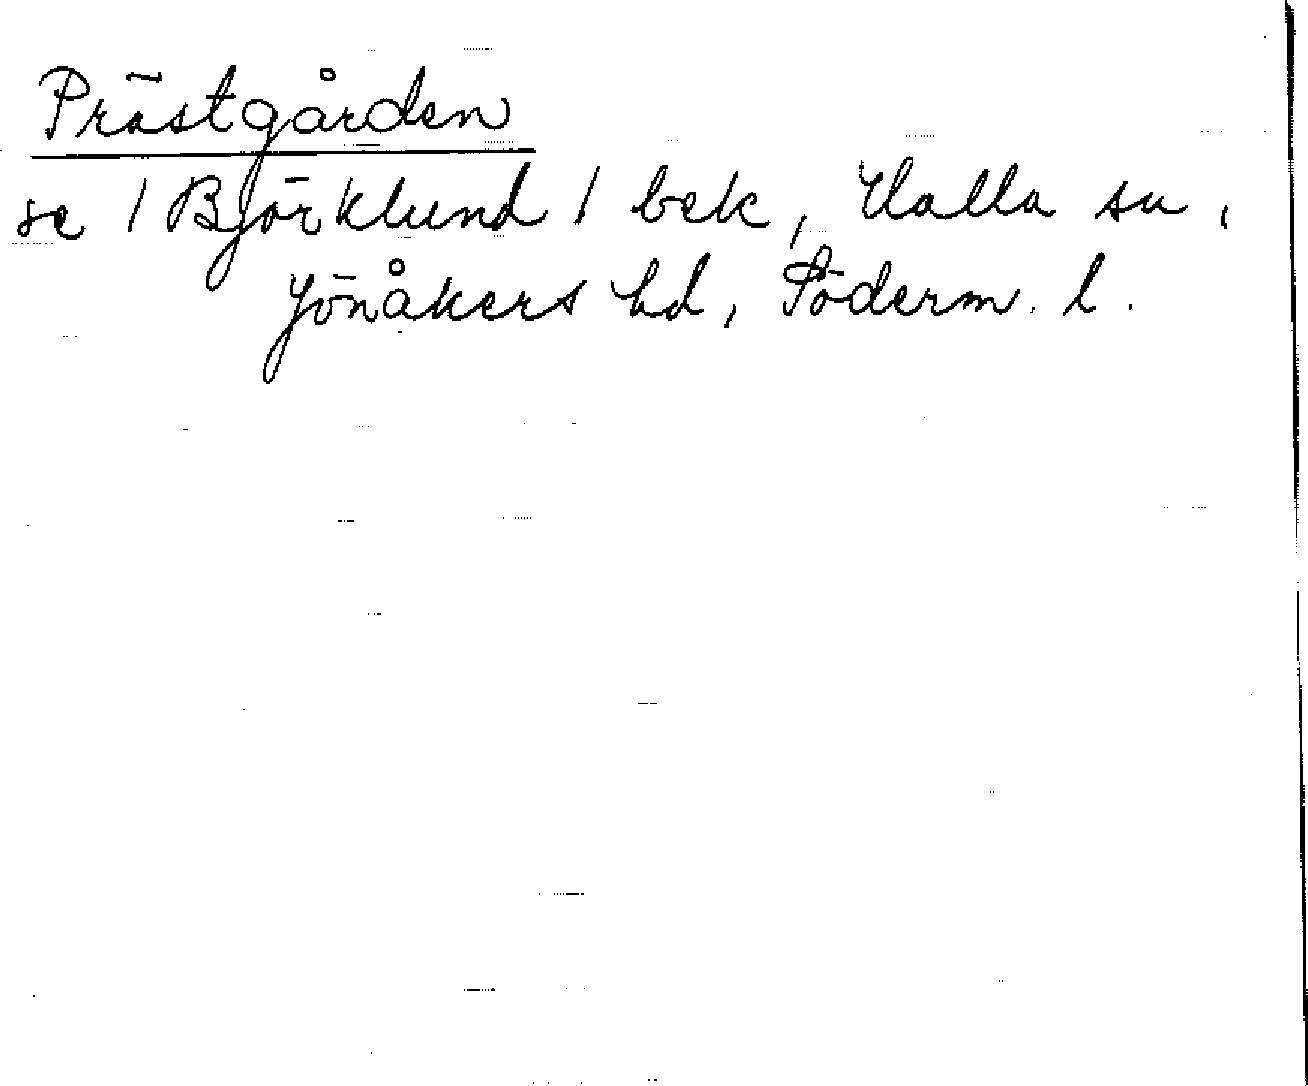 Prästgården
se / Björklund / bek, Halla sn,
Jönåkers hd, Söderm. l.